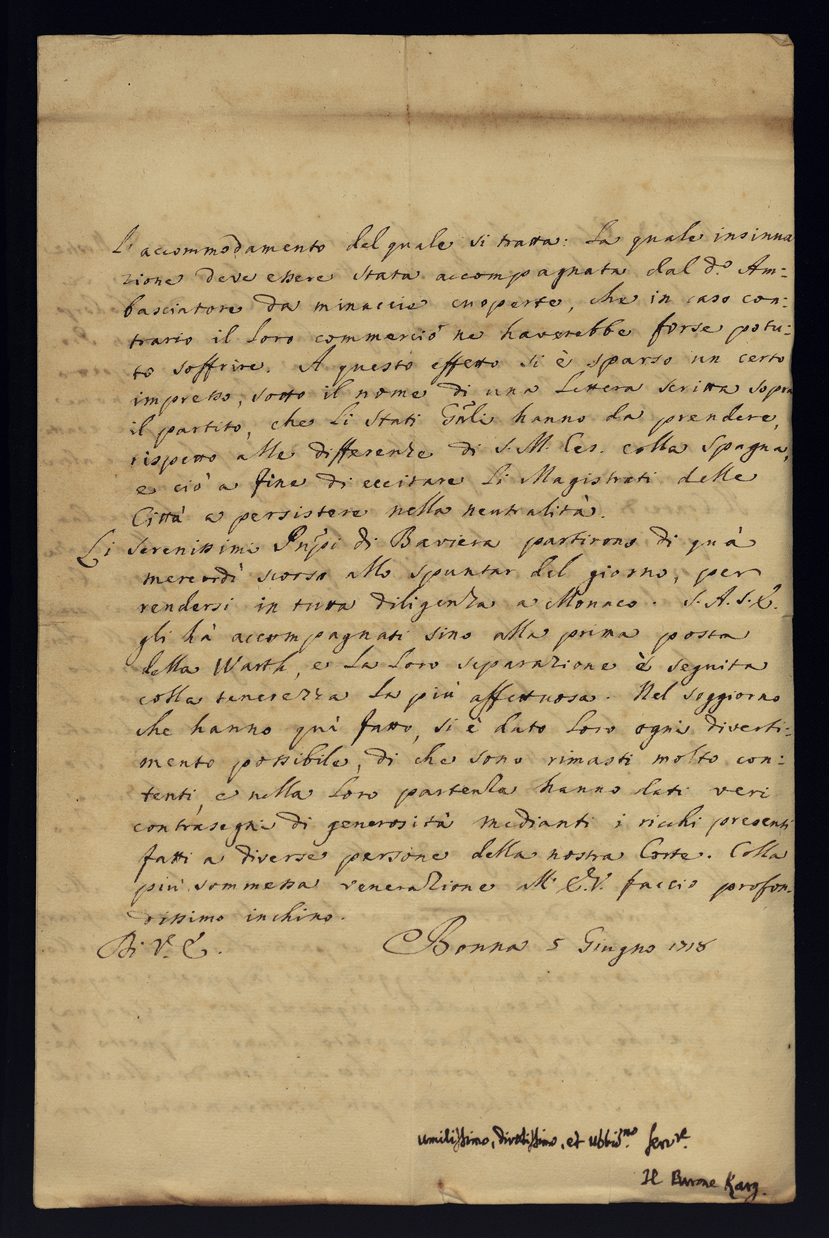 L'accommodamento del quale si tratta: La quale insinua
zione deve essere stata accompagnata dal d.º Am=
basciatore da minaccie coperte, che in caso con=
trario il Loro commercio ne haverebbe forse potu=
to soffrire. A questo effetto si è sparso un certo
impresso, sotto il nome di una Lettera scritta sopra
il partito, che Li Stati Gñli hanno da prendere,
rispetto alle differenze di S. M. Ces. colla Spagna,
e ciò a fine di eccitare Li Magistrati delle
Città a persistere nella neutralità.
Li Serenissimi Prñpi di Baviera partirono di quà
mercordì scorso allo spuntar del giorno, per
rendersi in tutta diligenza a Monaco. S. A. S. E.
gli hà accompagnati sino alla prima posta
della Warth, e La Loro separazione è seguita
colla tenerezza La più affettuosa. Nel soggiorno
che hanno quì fatto, si è dato Loro ogni diverti=
mento possibile, di che sono rimasti molto con=
tenti, e nella Loro partenza hanno dati veri
contrasegni di generosità medianti i ricchi presenti
fatti a diverse persone della nostra Corte. Colla
più sommessa venerazione all' E. V. faccio profon=
dissimo inchino.
Di V. E. Bonna 5 Giugno 1718
umilissimo, divotissimo, et ubbid.mo Serv.re
Il Barone Karg.